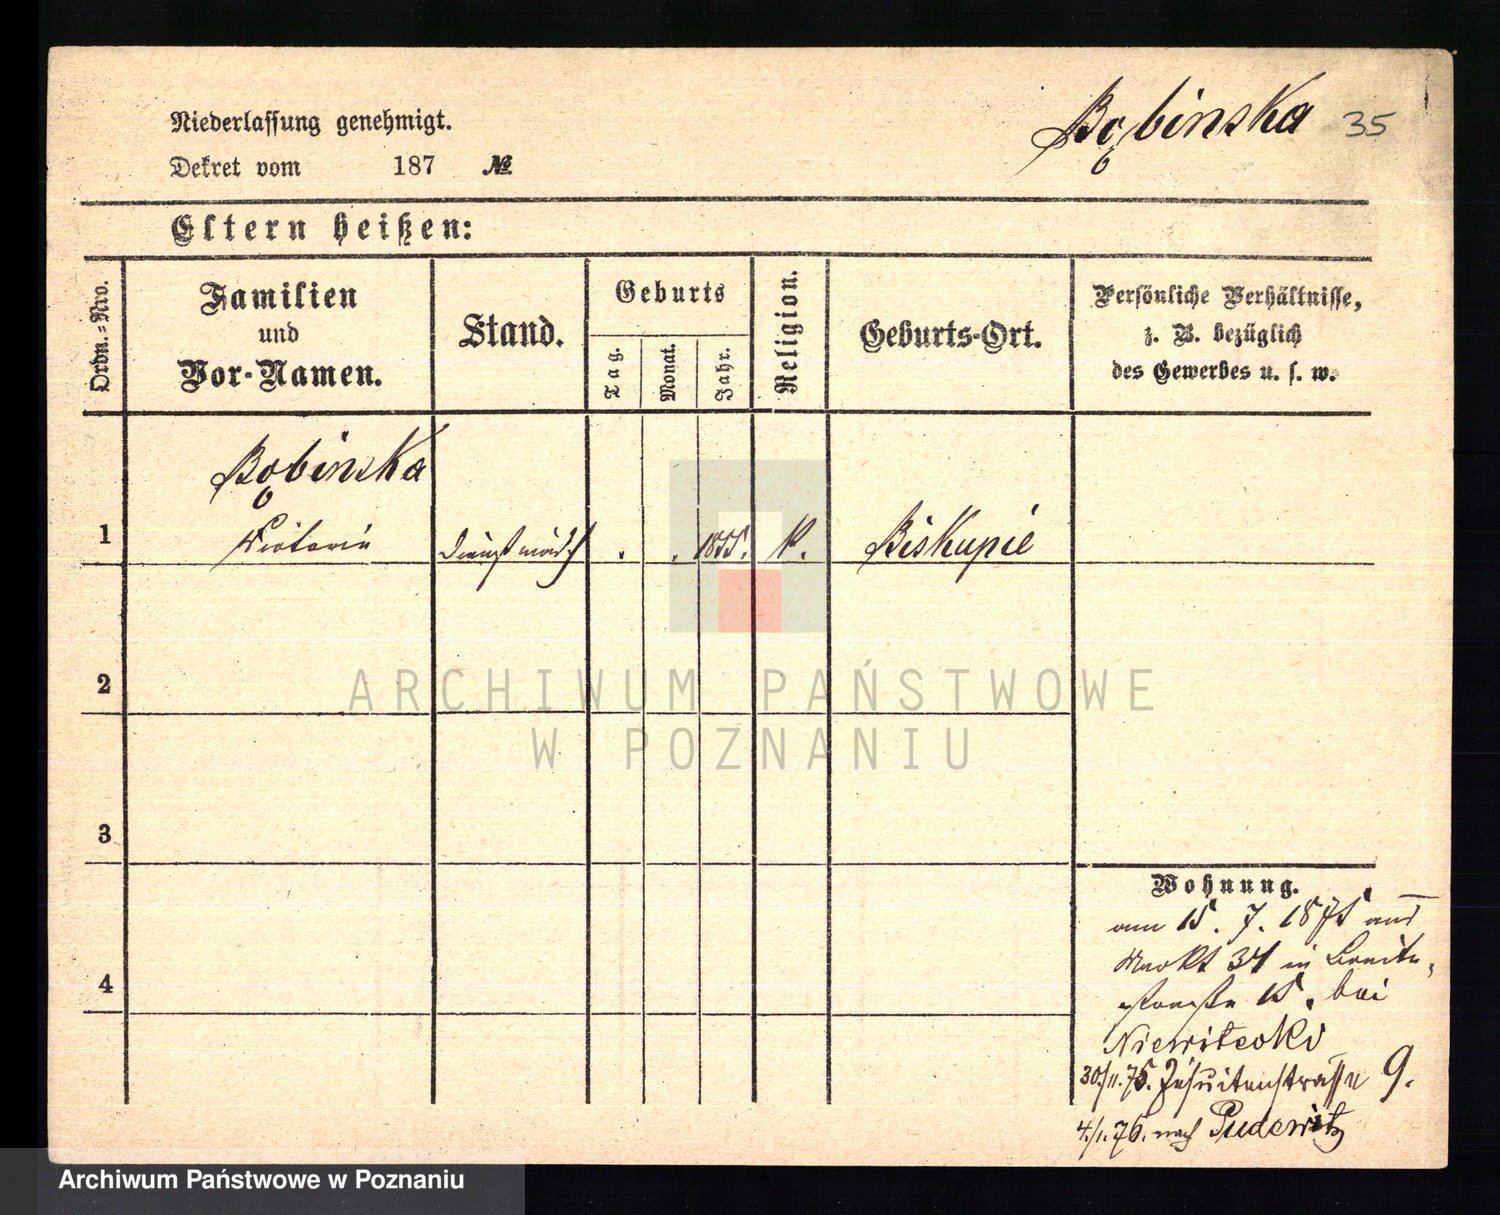 Niederlassung genehmigt.
Dekret vom 187 №
Bąbinska 35
Eltern heißen:
Ordn.-Nro.
Familien
und
Vor-Namen.
Stand.
Geburts
Tag.
Monat.
Jahr.
Religion.
Geburts-Ort.
Persönliche Verhältnisse,
z. B. bezüglich
des Gewerbes u. s. w.
Bąbinska
1 Victoria Dienstmädch . . 1855. k. Biskupie
2
ARCHIWUM PAŃSTWOWE
W POZNANIU
3
Wohnung.
am 15. 7. 1875 aus
Markt 34 in Breite-
straße 15. bei
30/11. 75. Jesuitenstrasse 9.
4./1. 76. nach Pudewitz
4
Archiwum Państwowe w Poznaniu